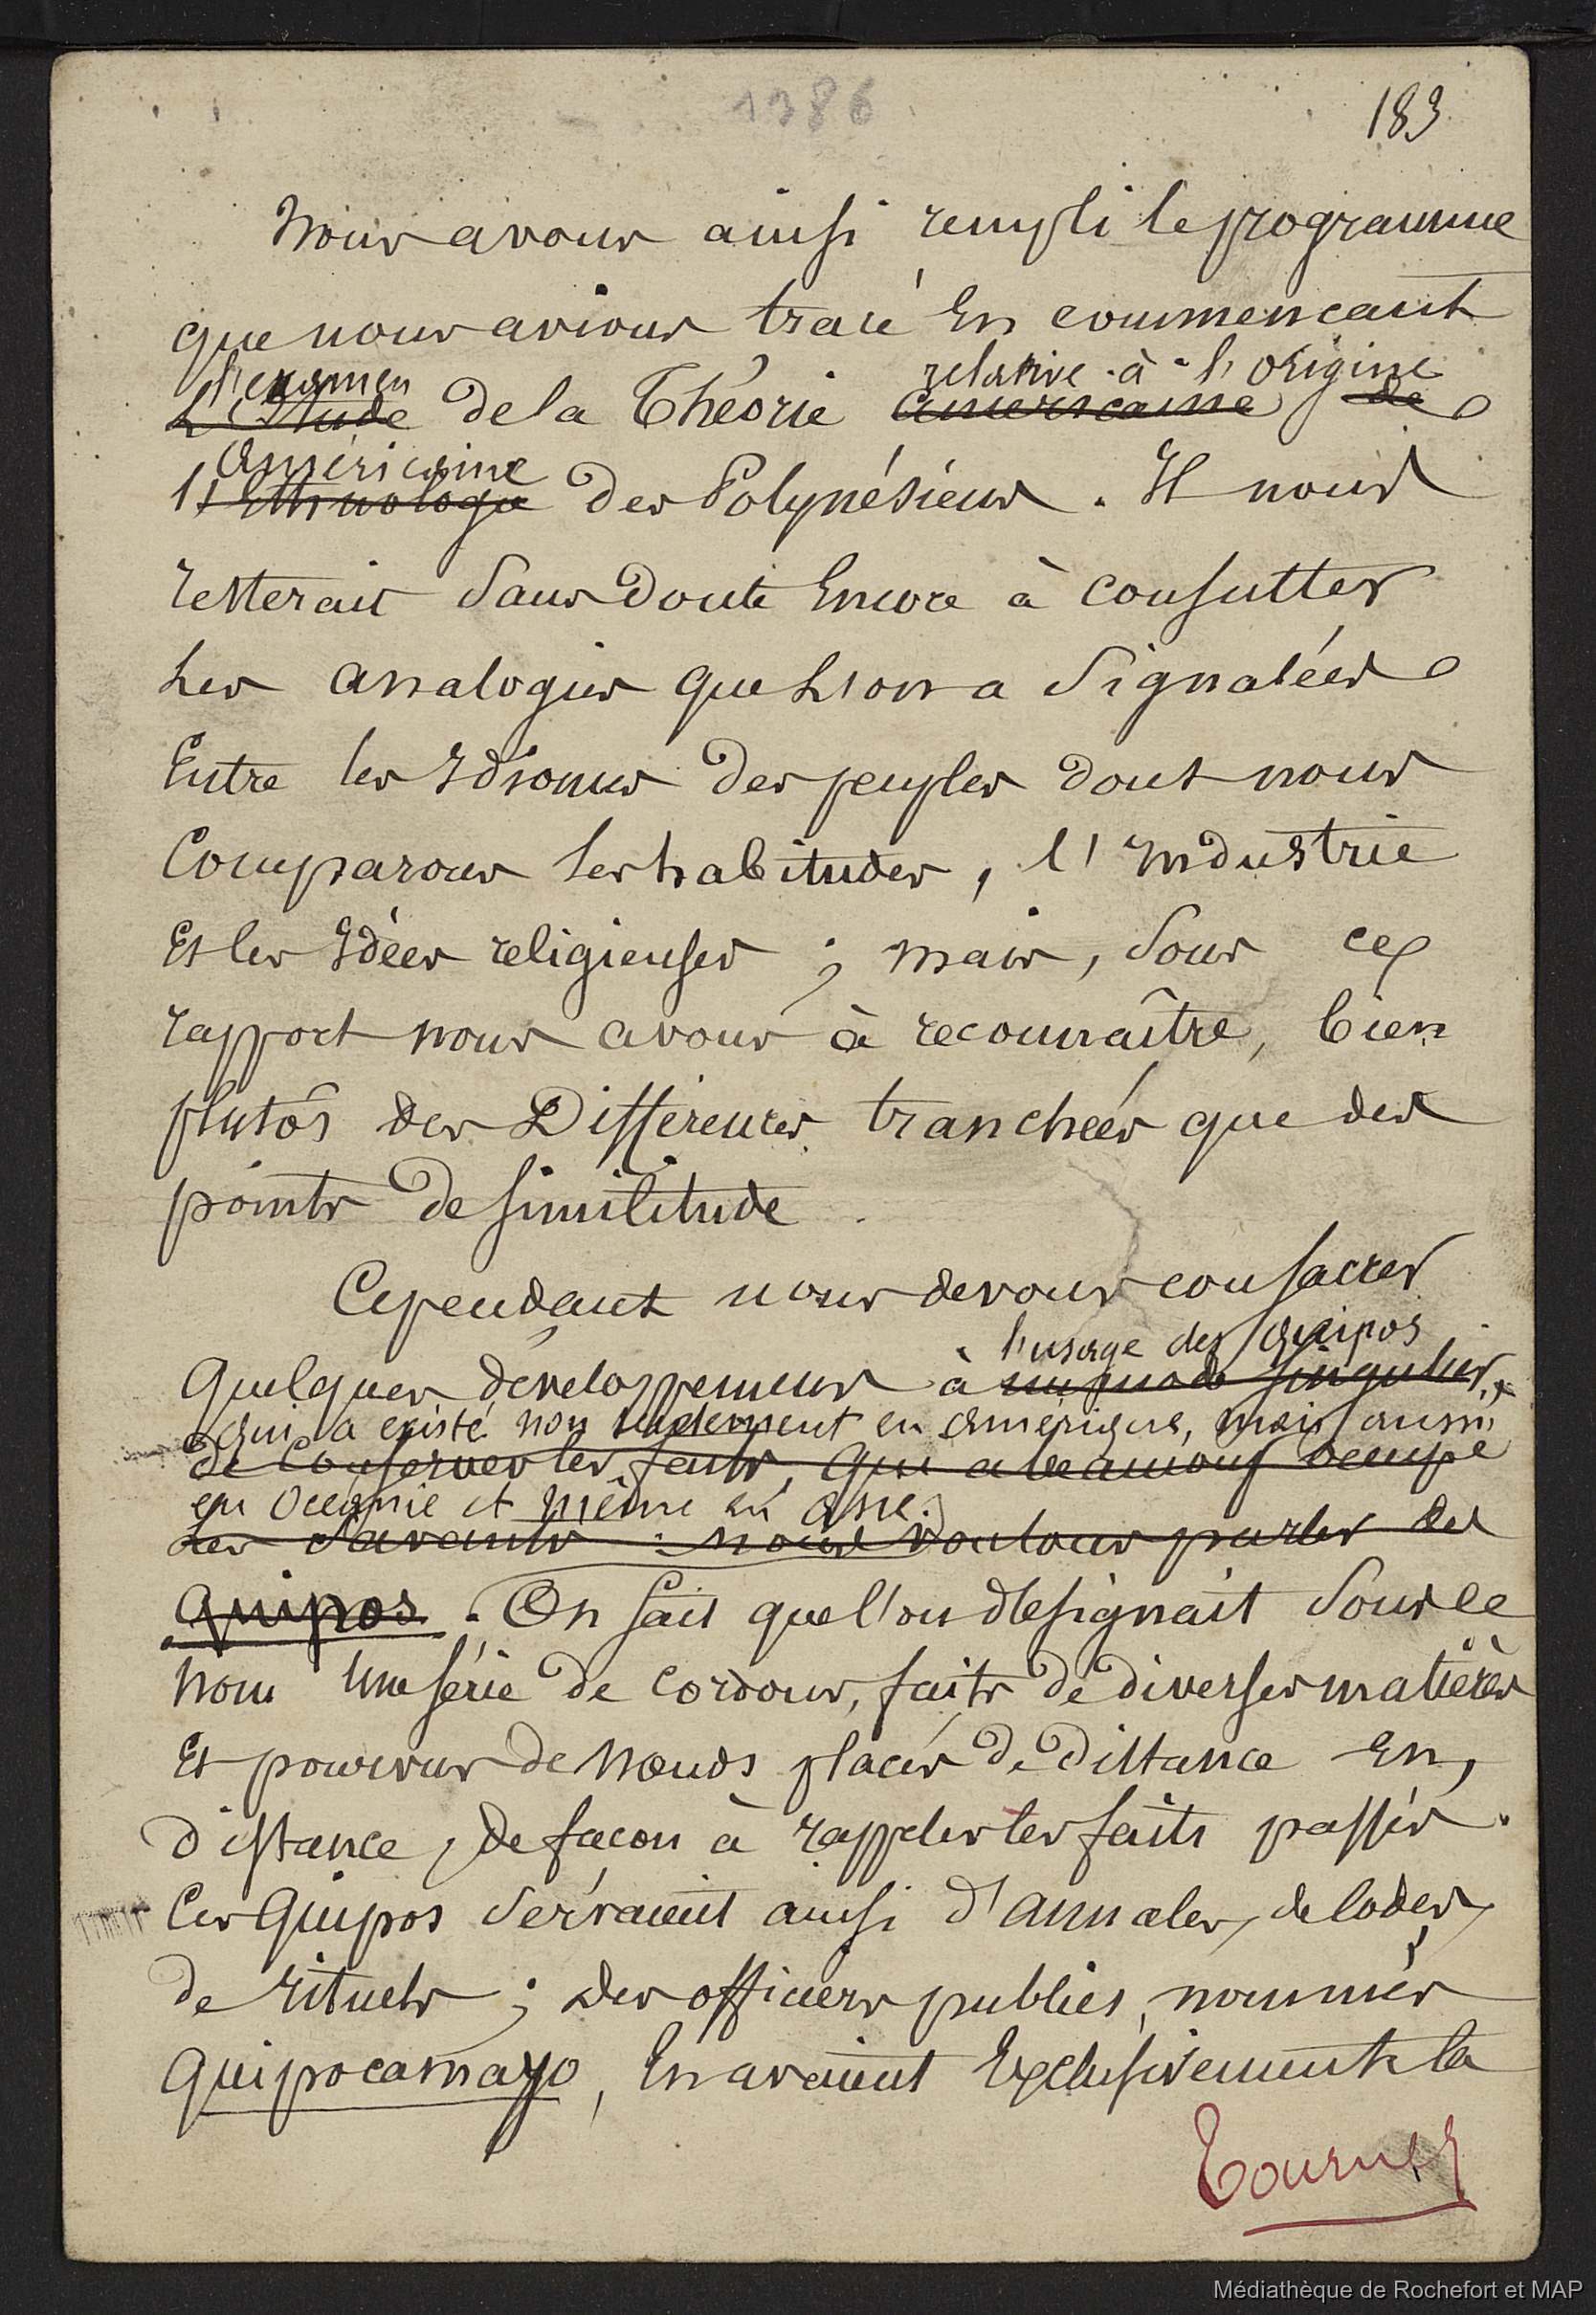 1386
183
Nous avons ainsi rempli le programme
que nous avions tracé en commençant
l'examen relative à l'origine
L'Etude de la Théorie américaine de
américaine
l'Ethnologie des Polynésiens. Il nous
resterait sans doute encore à consulter
les analogies que l'on a signalées
entre les Idiomes des peuples dont nous
comparons les habitudes, l'Industrie
et les Idées religieuses ; mais, sous ce
rapport nous avons à reconnaître, bien
plutôt des Différences tranchées que des
points de similitude.
Cependant nous devons consacrer
l'usage des Quipos
quelques développemens à un mode singulier,
qui a existé non seulement en Amérique, mais aussi
de conserver les faits, qui a beaucoup occupé
en Océanie et même en Asie.
les savants : nous voulons parler des
quipos. On sait que l'on désignait sous ce
nom une série de cordons, faits de diverses matières
et pourvus de noeuds placés de distance en
distance, de façon à rappeler les faits passés.
Ces Quipos servaient ainsi d'annales, de codes,
de rituels ; des officiers publics, nommés
Quipocamayo, en avaient exclusivement la
Tournez
Médiathèque de Rochefort et MAP